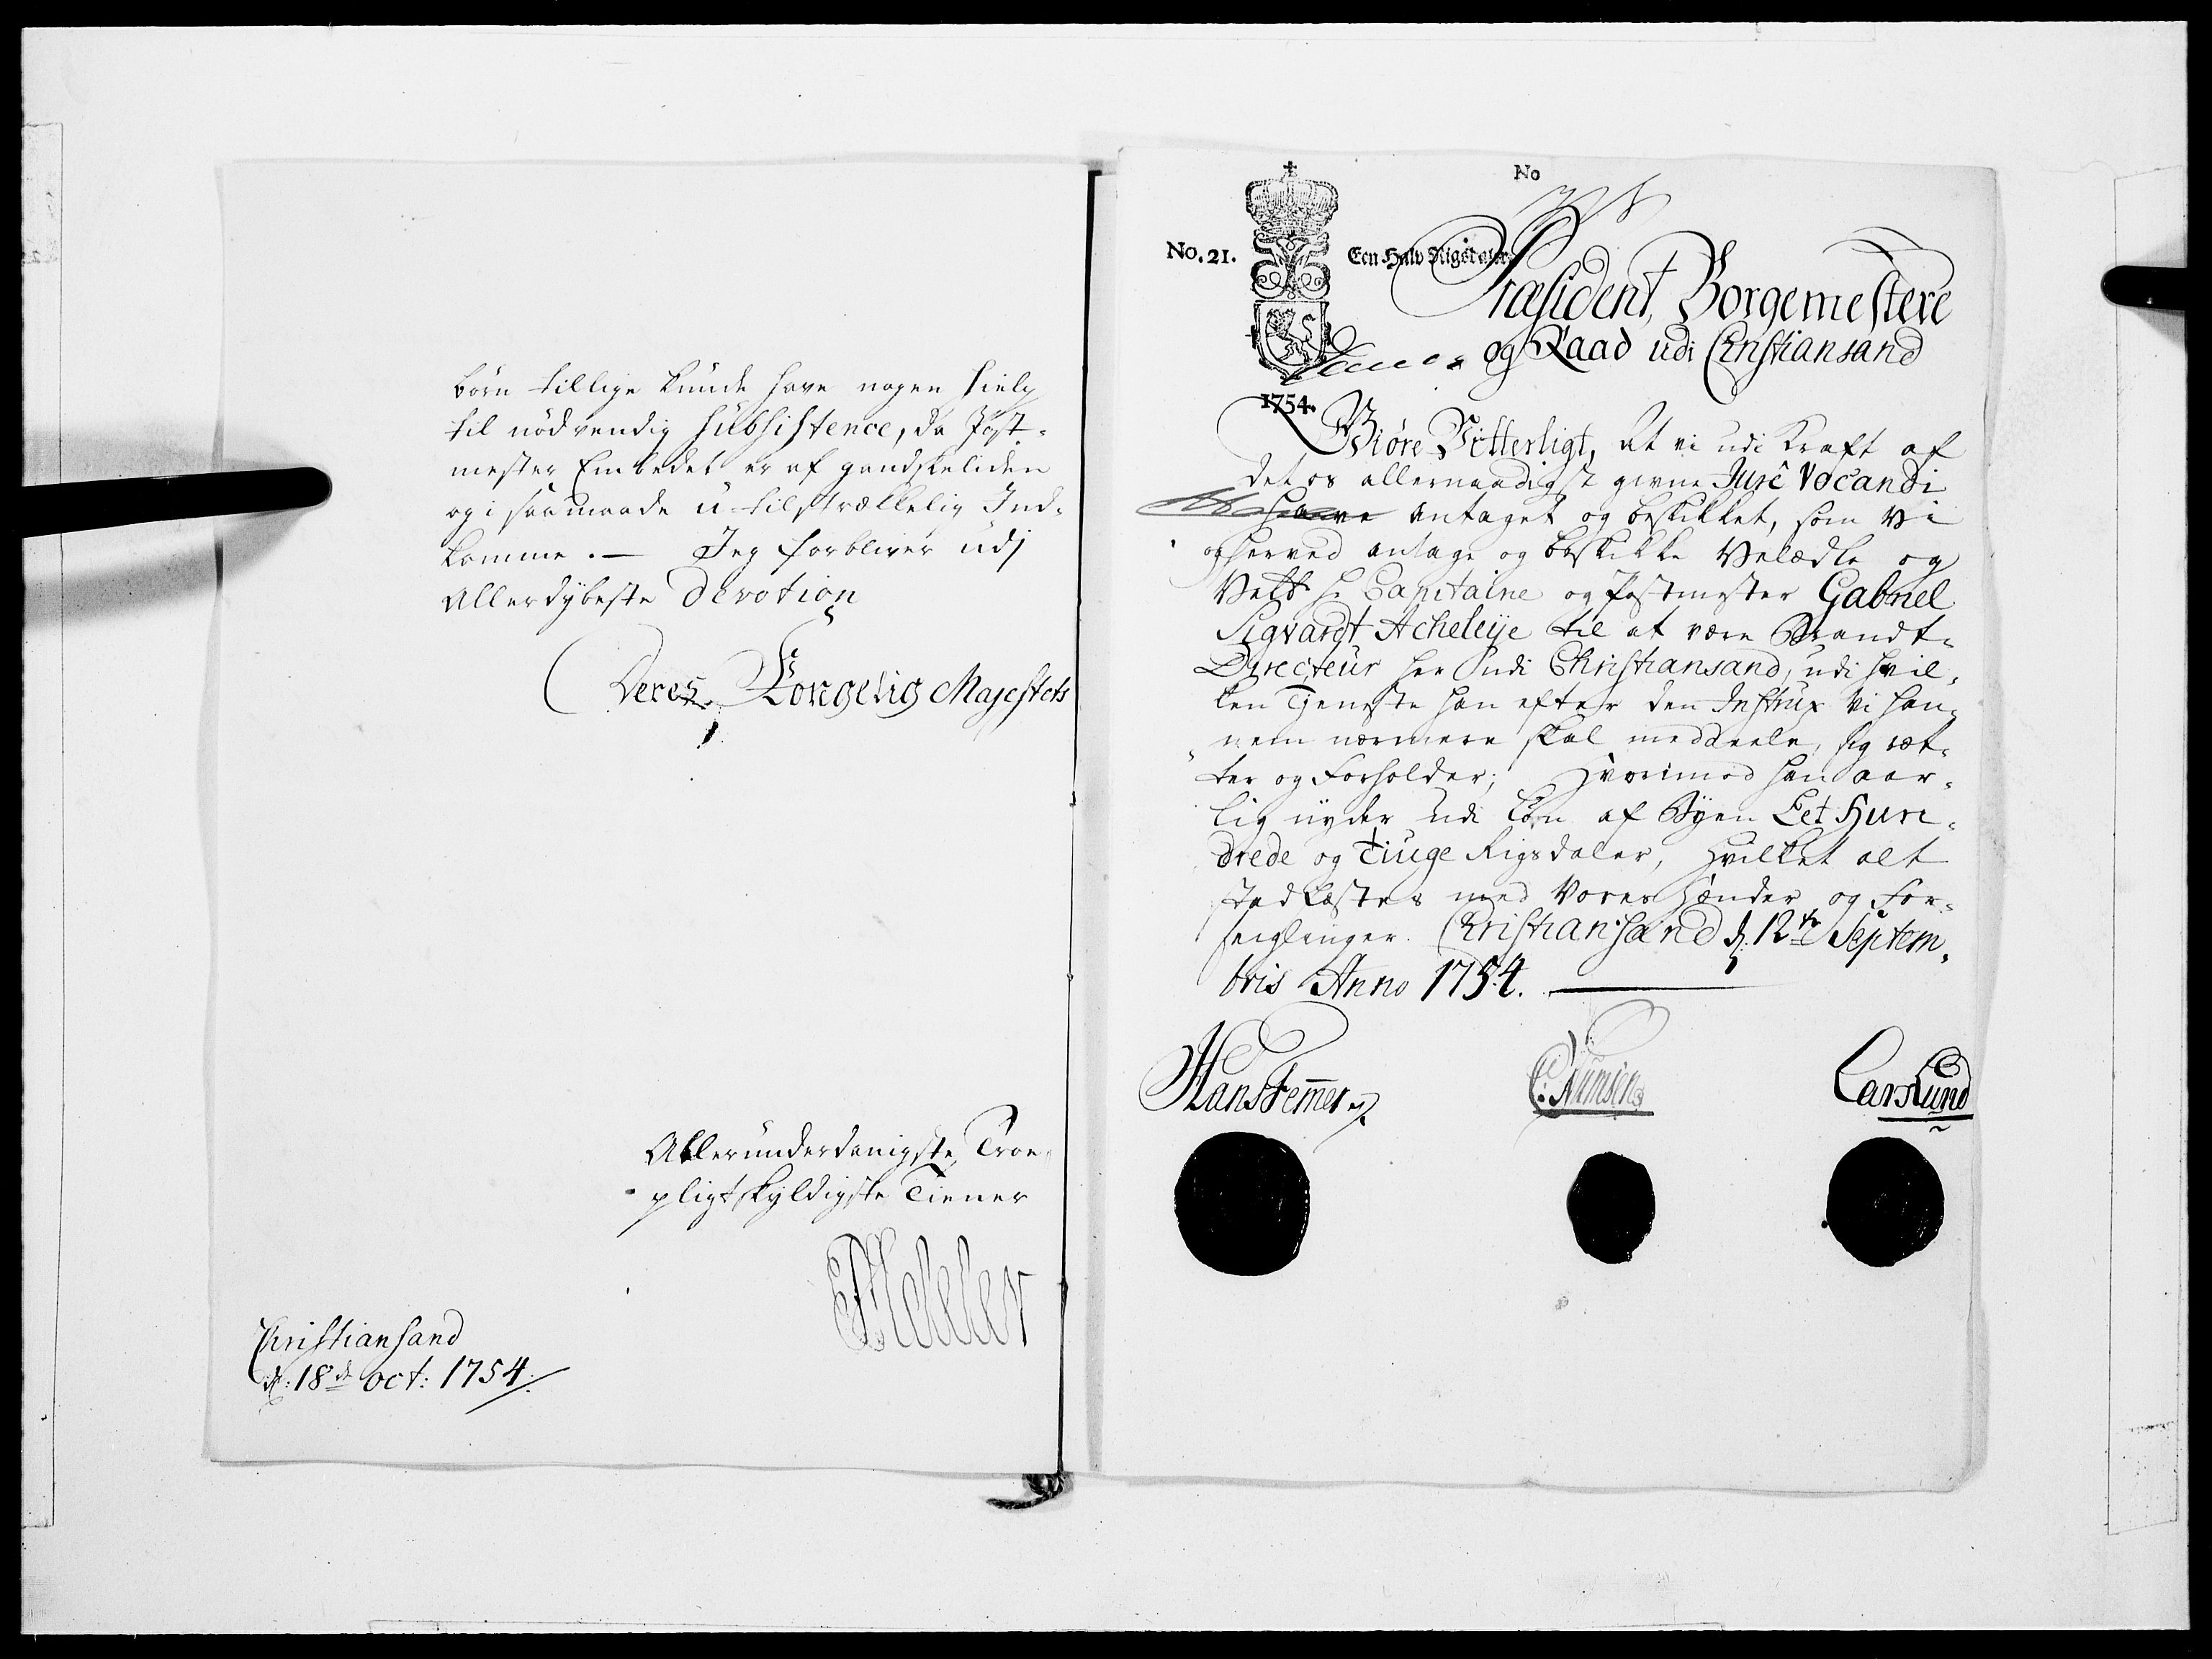 børn tillige kunde have nogen hielp
til nødvendig Subsistence, da Post-
mester Embedet er af gandske liden
og i saa maade u-tilstrækkelig Ind-
komme. — Jeg forbliver udj
Allerdybeste Devotion
Deres Kongelig Majestets
Allerunderdanigste Troe
pligtskyldigste Tiener
Christiansand
d: 18de oct: 1754.
No
No. 21.
Een Halv Rigsdaler
Præsident, Borgemestere
og Raad udi Christiansand
1754.
Giøre Vitterligt, at vi udi Kraft af
det os allernaadigst givne Jure Vocandi
have antaget og beskikket, som Vi
og herved antage og beskikke Velædle og
Velb: Hr Capitaine og Postmester Gabriel
Sigvardt Acheleye til at være Brandt-
Directeur her udi Christiansand, udi hvil-
ken Tjeneste han efter den Instrux Vi han-
nem nærmere skal meddeele, sig ret-
ter og Forholder; Hvorimod han aar-
lig nyder udi Løn af Byen Eet Hun-
drede og Tiuge Rigsdaler, Hvilket alt
stadfæstes med Vores Hænder og For-
seiglinger. Christiansand d: 12te Septem-
bris Anno 1754.
Hans Femer
C: Numsen
Lars Lund